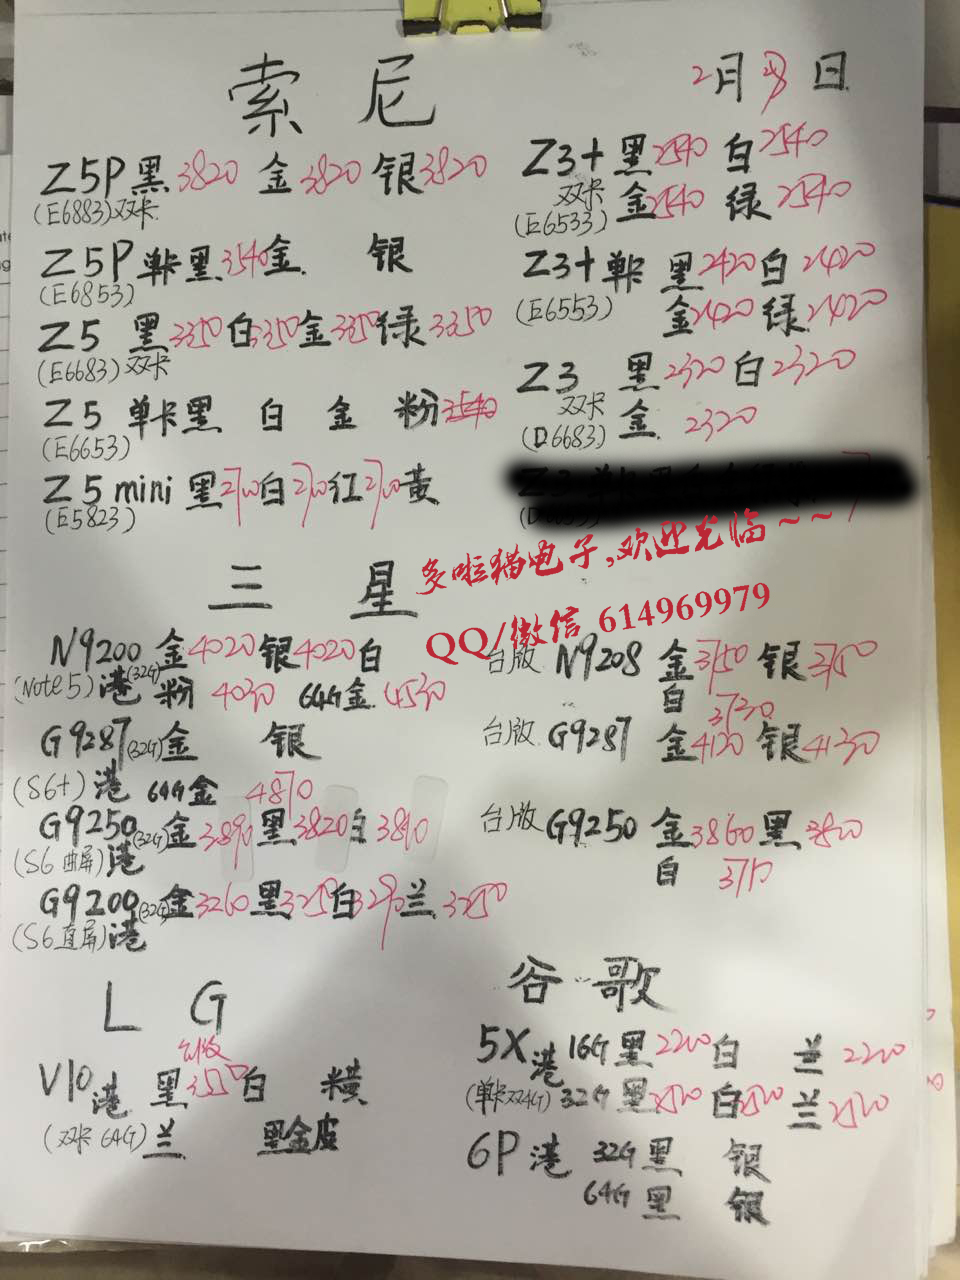 索尼
2月 日
Z5P 黑3820 金3820 银3820
(E6883)双卡
Z5P 单卡 黑3540 金 银
(E6853)
Z5 黑3350 白3350 金3350 绿3350
(E6683)双卡
Z5 单卡 黑 白 金 粉
(E6653)
Z5 mini 黑2700 白2700 红2700 黄
(E5823)
Z3+ 黑2540 白2540
双卡 金2540 绿2540
(E6533)
Z3+ 单卡 黑2420 白2420
(E6553) 金2420 绿2420
Z3 黑2320 白2320
双卡
(D6683) 金 2320
多啦猫电子,欢迎光临~~
QQ/微信 614969979
三星
N9200 金4020 银4020 白
(Note5)港(32G) 粉 4030 64G金 4530
G9287(32G) 金 银
(S6+)港 64G金 4870
G9250(32G) 金3890 黑3820 白3890
(S6曲屏)港
G9200(32G) 金3260 黑3250 白3290 兰 3250
(S6直屏)港
台版 N9208 金3750 银3750
白 3730
台版 G9287 金4120 银4130
台版 G9250 金3860 黑
白
LG
台版
V10港 黑 白 米黄
(双卡 64G) 兰 黑金皮
谷歌
5X港 16G 黑2200 白 兰 2200
(单卡双4G) 32G 黑2500 白2500 兰2500
6P 港 32G 黑 银
64G 黑 银